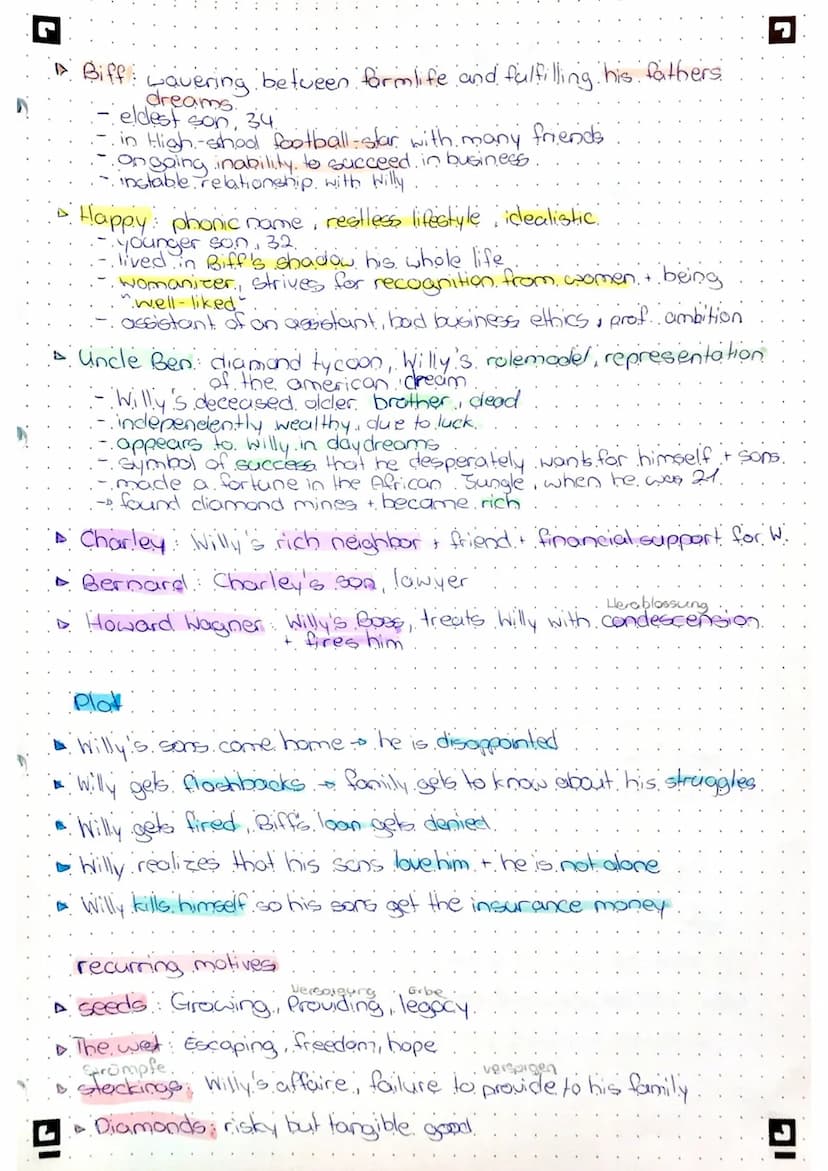 ▷ Biff: wavering between farmlife and fulfilling his fathers
dreams
- eldest son, 34
- in High-school football-star with many friends
- ongoing inability to succeed in business
- instable relationship with Willy
▷ Happy: phonic name, restless lifestyle, idealistic
- younger son, 32
- lived in Biff's shadow his whole life
- womanizer, strives for recognition from women + being
"well-liked"
- assistant of an assistant, bad business ethics, prof. ambition
▷ Uncle Ben: diamond tycoon, Willy's rolemodel, representation
of the american dream
- Willy's deceased older brother, dead
- independently wealthy, due to luck
- appears to Willy in daydreams
- symbol of success that he desperately wants for himself + sons
- made a fortune in the African Jungle, when he was 21
→ found diamond mines + became rich
▷ Charley: Willy's rich neighbor + friend + financial support for W.
▷ Bernard: Charley's son, lawyer
Herablassung
▷ Howard Wagner: Willy's Boss, treats Willy with condescension
+ fires him
Plot
▷ Willy's sons come home → he is disappointed
▷ Willy gets flashbacks → family gets to know about his struggles
▷ Willy gets fired, Biff's loan gets denied
▷ Willy realizes that his sons love him + he is not alone
▷ Willy kills himself so his sons get the insurance money
recurring motives
Versorgung Erbe
▷ seeds: Growing, Providing, legacy
▷ The west: Escaping, freedom, hope
Strümpfe versorgen
▷ stockings: Willy's affaire, failure to provide to his family
▷ Diamonds: risky but tangible good